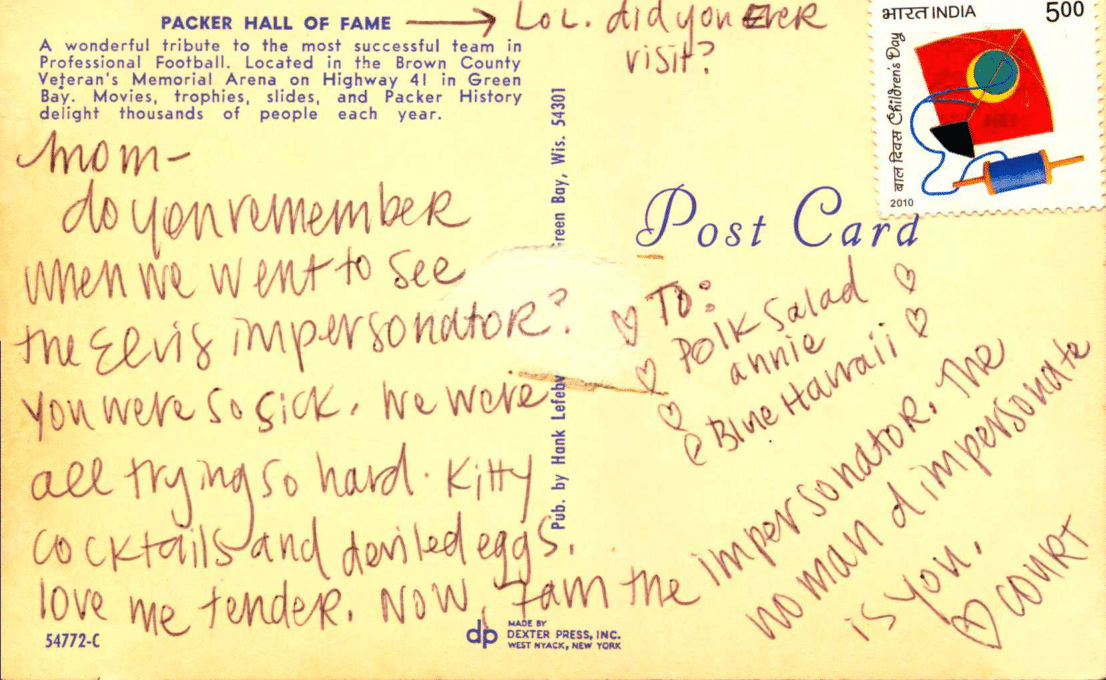 PACKER HALL OF FAME
A wonderful tribute to the most successful team in
Professional Football. Located in the Brown County
Veteran's Memorial Arena on Highway 41 in Green
Bay. Movies, trophies, slides, and Packer History
delight thousands of people each year.
LOL. did you EVER
visit?
भारत INDIA 500
बाल दिवस Children's Day
2010
Mom-
do you remember
when we went to see
the Elvis impersonator?
You were so sick. We were
all trying so hard. Kitty
cocktails and deviled eggs.
love me tender. Now, I am the impersonator. The
no man d impersonate
is you.
♡ COURT
Pub. by Hank Lefeby
Green Bay, Wis. 54301
Post Card
To:
Polk Salad
annie
Blue Hawaii
54772-C
dp
MADE BY
DEXTER PRESS, INC.
WEST NYACK, NEW YORK